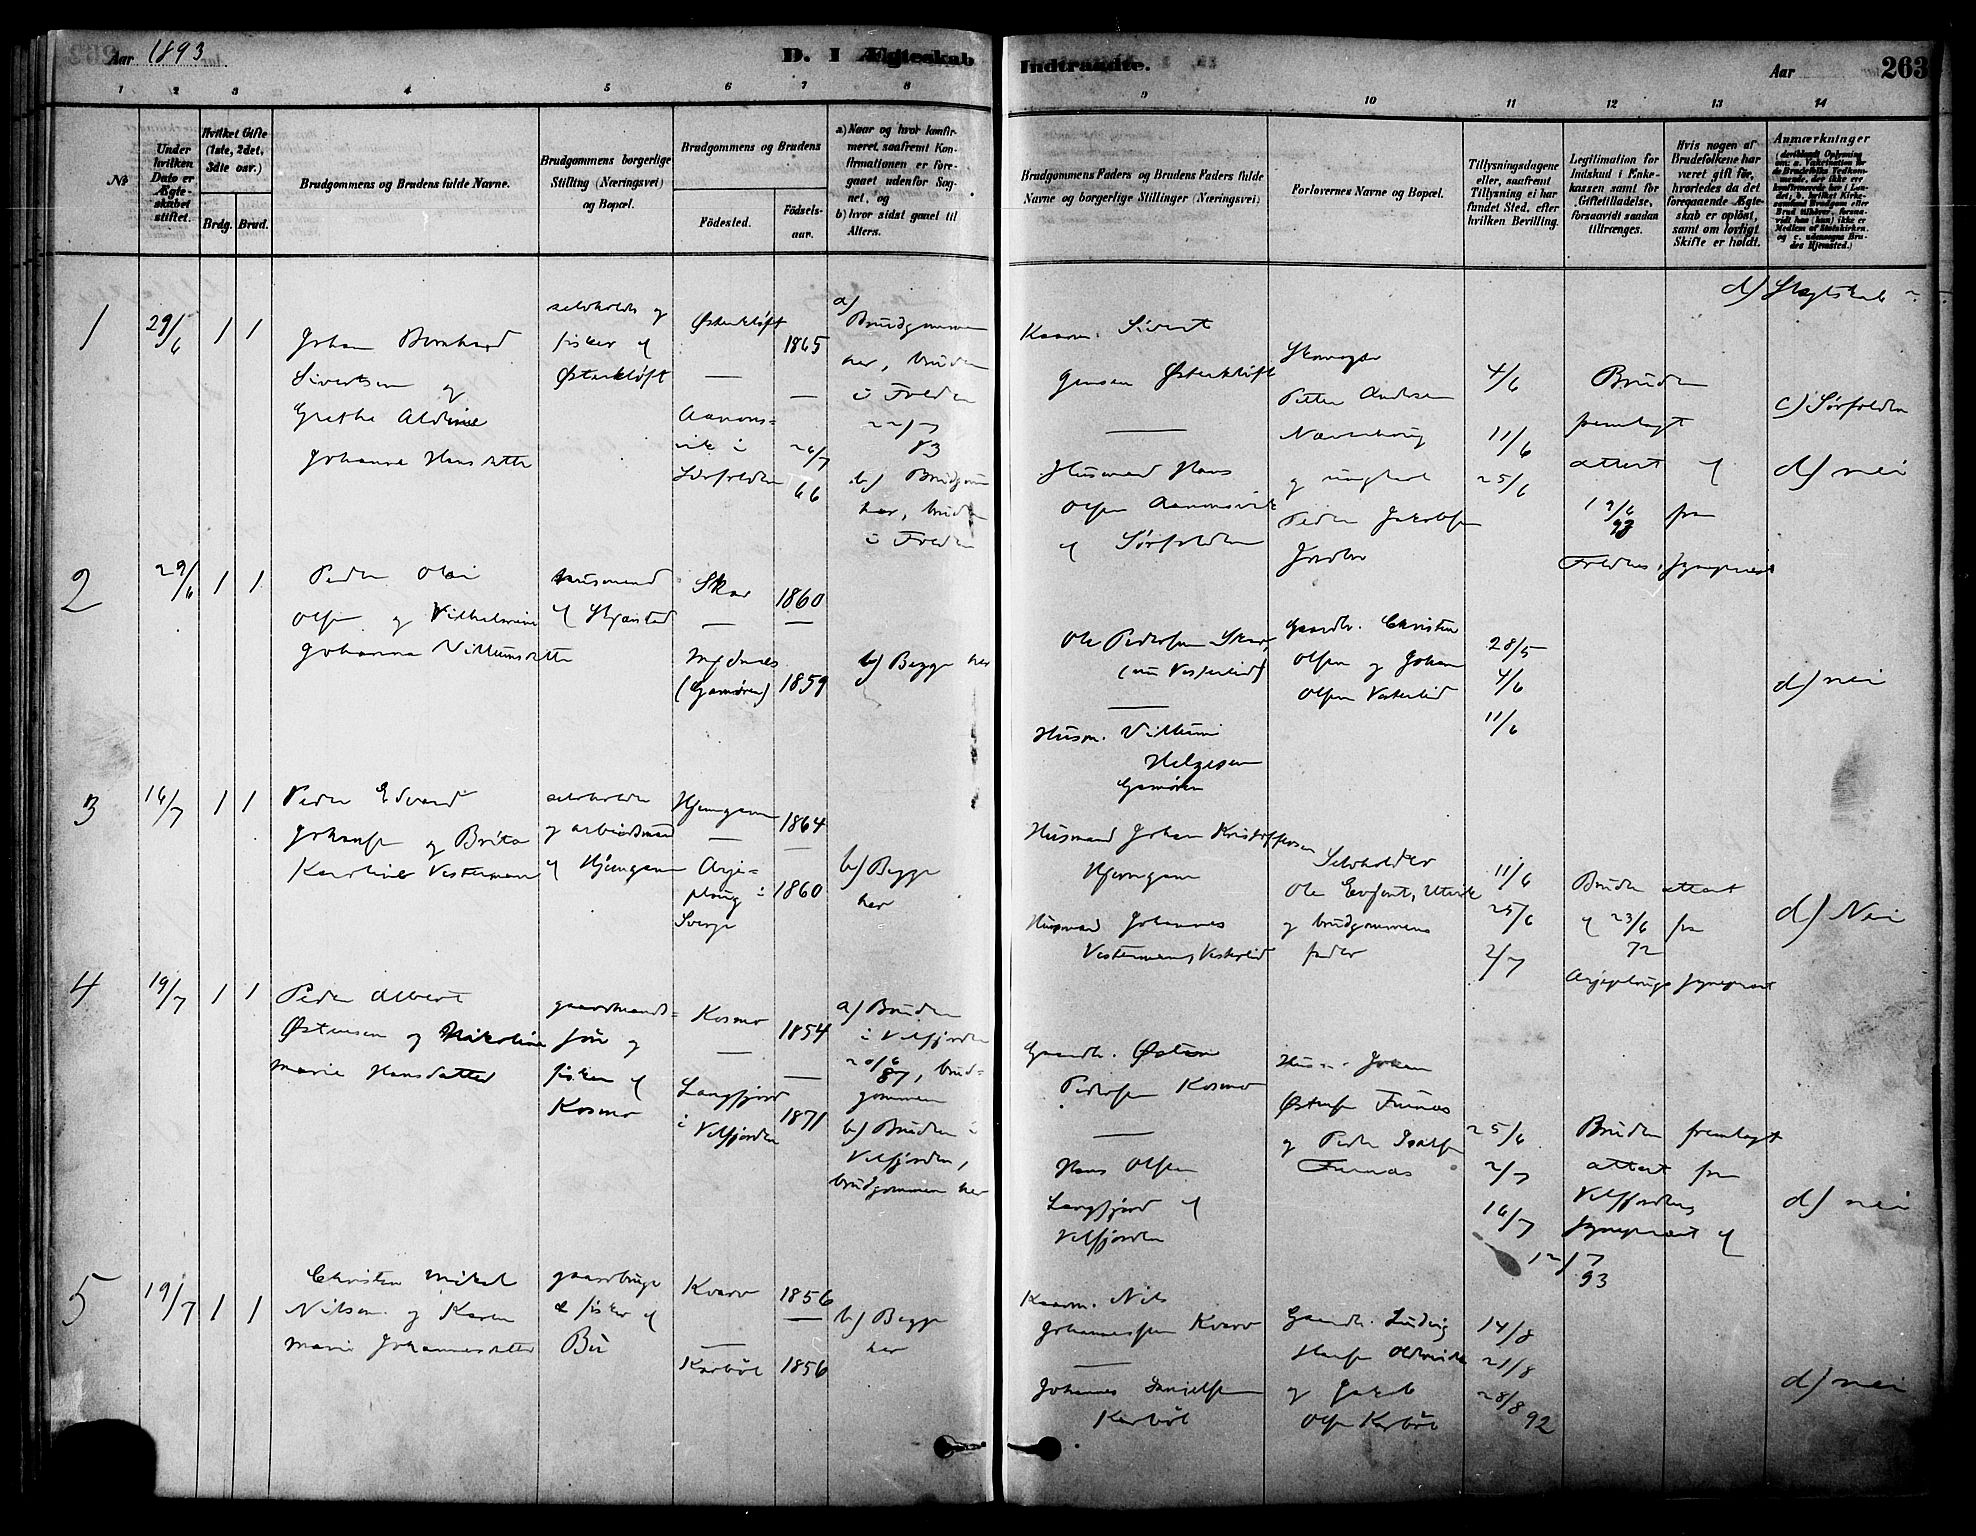 Aar 1893
D. I Ægteskab
Indtraadte.
Aar
263
1 2 3 4 5 6 7 8 9 10 11 12 13 14
№
Under hvilken Dato er Ægteskabet stiftet.
Hvilket Gifte (1ste, 2det, 3die osv.)
Brdg. Brud.
Brudgommens og Brudens fulde Navne.
Brudgommens borgerlige Stilling (Næringsvei) og Bopæl.
Brudgommens og Brudens
Födested.
Födselsaar.
a) Naar og hvor konfirmeret, saafremt Konfirmationen er foregaaet udenfor Sognet, og
b) hvor sidst gaaet til Alters.
Brudgommens Faders og Brudens Faders fulde Navne og borgerlige Stillinger (Næringsvei)
Forlovernes Navne og Bopæl.
Tillysningsdagene eller, saafremt Tillysning ei har fundet Sted, efter hvilken Bevilling.
Legitimation for Indskud i Enkekassen samt for Giftetilladelse, forsaavidt saadan tiltrænges.
Hvis nogen af Brudefolkene har været gift før, hvorledes da det foregaaende Ægteskab er oplöst, samt om lovligt Skifte er holdt.
Anmærkninger
d) Slegtskab
1
29/6
1 1
Johan Bernhard
Sivertsen og
Grethe Aldine
Johanna Hansdatter
selvholder og
fisker af
Østerkløft
Østerkløft
—
Aanonsvik i
Sørfolden
1865
—
24/7
66
a)
Brudgommen
her, bruden
i Folden
22/7
83
b) Brudgom
her, bruden
i Folden
Kaarm. Sivert
Jensen Østerkløft
—
Husmand Hans
Olsen Aanonsvik
af Sørfolden
Skovvogter
Petter Andersen
og ungkarl
Peder Jakobsen
4/6
11/6
25/6
Bruden
fremlagt
attest af
19/6
93 fra
Foldens sognepræst
c) Sørfolden
d) nei
2
29/6
1 1
Peder Olai
Olsen og Vilhelmine
Johanna Villumsdatter
husmand
af Skjønstad
Skar
—
(Gamøren)
1860
—
1859
b) Begge her
Ole Pedersen Skar,
(nu Vesterlid)
—
Husm. Villum
Helgesen
Gamøren
Gaardbr. Christen
Olsen og Johan
Olsen Vesterlid
28/5
4/6
11/6
d) nei
3
16/7
1 1
Peder Edvard
Johansen og Brita
Karoline Vesterman
selvholder
og arbeidsmand
af Hjemgam
Hjemgam
—
Arjeploug i
Sverge
1864
—
1860
b) Begge
her
Husmand Johan Kristoffersen
Hjemgam
Husmand Johannes
Vesterman, Vesterlid
Selvholder
og brudgommens
fader
11/6
25/6
2/7
Bruden attest
af 23/6 fra
72
Arjeplougs sognepræst
d) Nei
4
19/7
1 1
Peder Albert
Østensen og Nikoline
Marie Hansdatter
gaardmandssøn og
fisker af
Kosmo
Kosmo
—
Langfjord
i Velfjorden
1854
—
1871
a) Bruden
i Velfjorden
20/6
87, brudgommen
b) Bruden i
Velfjorden,
brudgommen her
Gaardbr. Østen
Pedersen Kosmo
—
Hans Olsen
Langfjord af
Velfjorden
Husm. Johan
Østensen Furnes
og Peder Isaksen
Furnes
25/6
2/7
16/7
Bruden fremlagt
attest fra
Velfjordens
sognepræst af
12/7
93
d) nei
5
19/7
1 1
Christen Mikal
Nilsen og Karen
Marie Johannesdatter
gaardbruger
& fisker af
Bu
Kvarv
—
Karbøl
1856
—
1856
b) Begge
her
Kaarm. Nils
Johannessen Kvarv
—
Johannes Danielsen
Karbøl
Gaardbr. Ludvig
Hansen Oldereide
og Jakob
Olsen Karbøl
14/8
21/8
28/8 92
d) nei